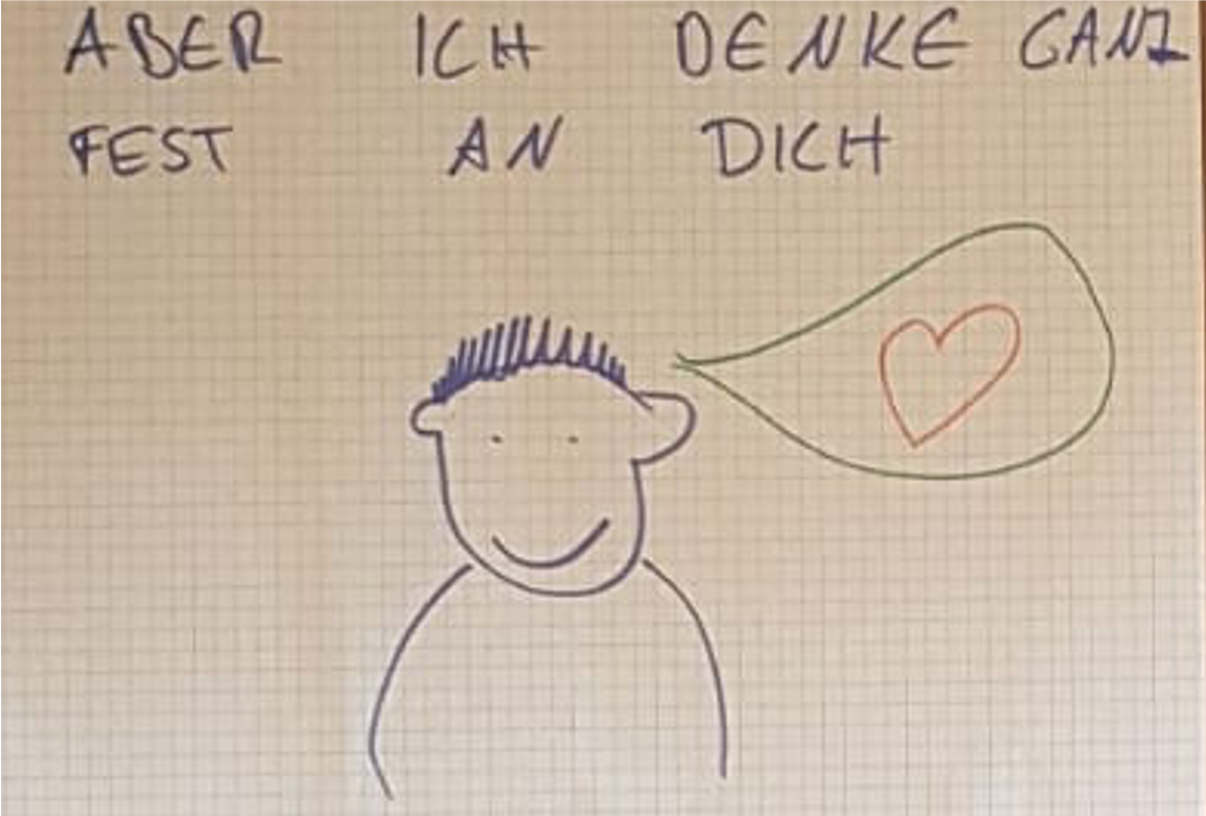 ABER ICH DENKE GANZ
FEST AN DICH